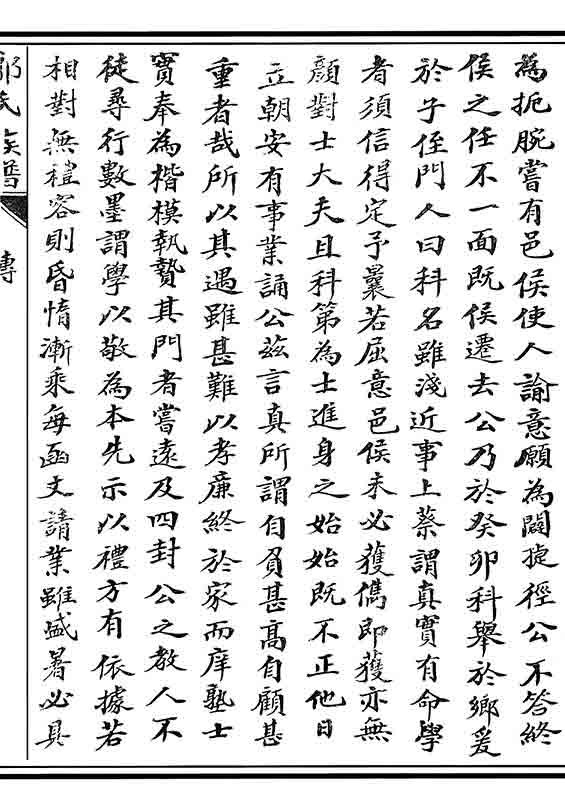 為扼腕嘗有邑侯使人諭意願為闢捷徑公不答終
侯之任不一面既侯遷去公乃於癸卯科舉於鄉爰
於子侄門人曰科名雖淺近事上蔡謂真實有命學
者須信得定予曩若屈意邑侯未必獲儁即獲亦無
顏對士大夫且科第為士進身之始始既不正他日
立朝安有事業誦公茲言真所謂自負甚高自顧甚
重者哉所以其遇雖甚難以孝廉終於家而庠塾士
實奉為楷模執贄其門者嘗遠及四封公之教人不
徒尋行數墨謂學以敬為本先示以禮方有依據若
相對無禮容則昏惰漸乘每函文請業雖盛暑必具
氏族譜
傳